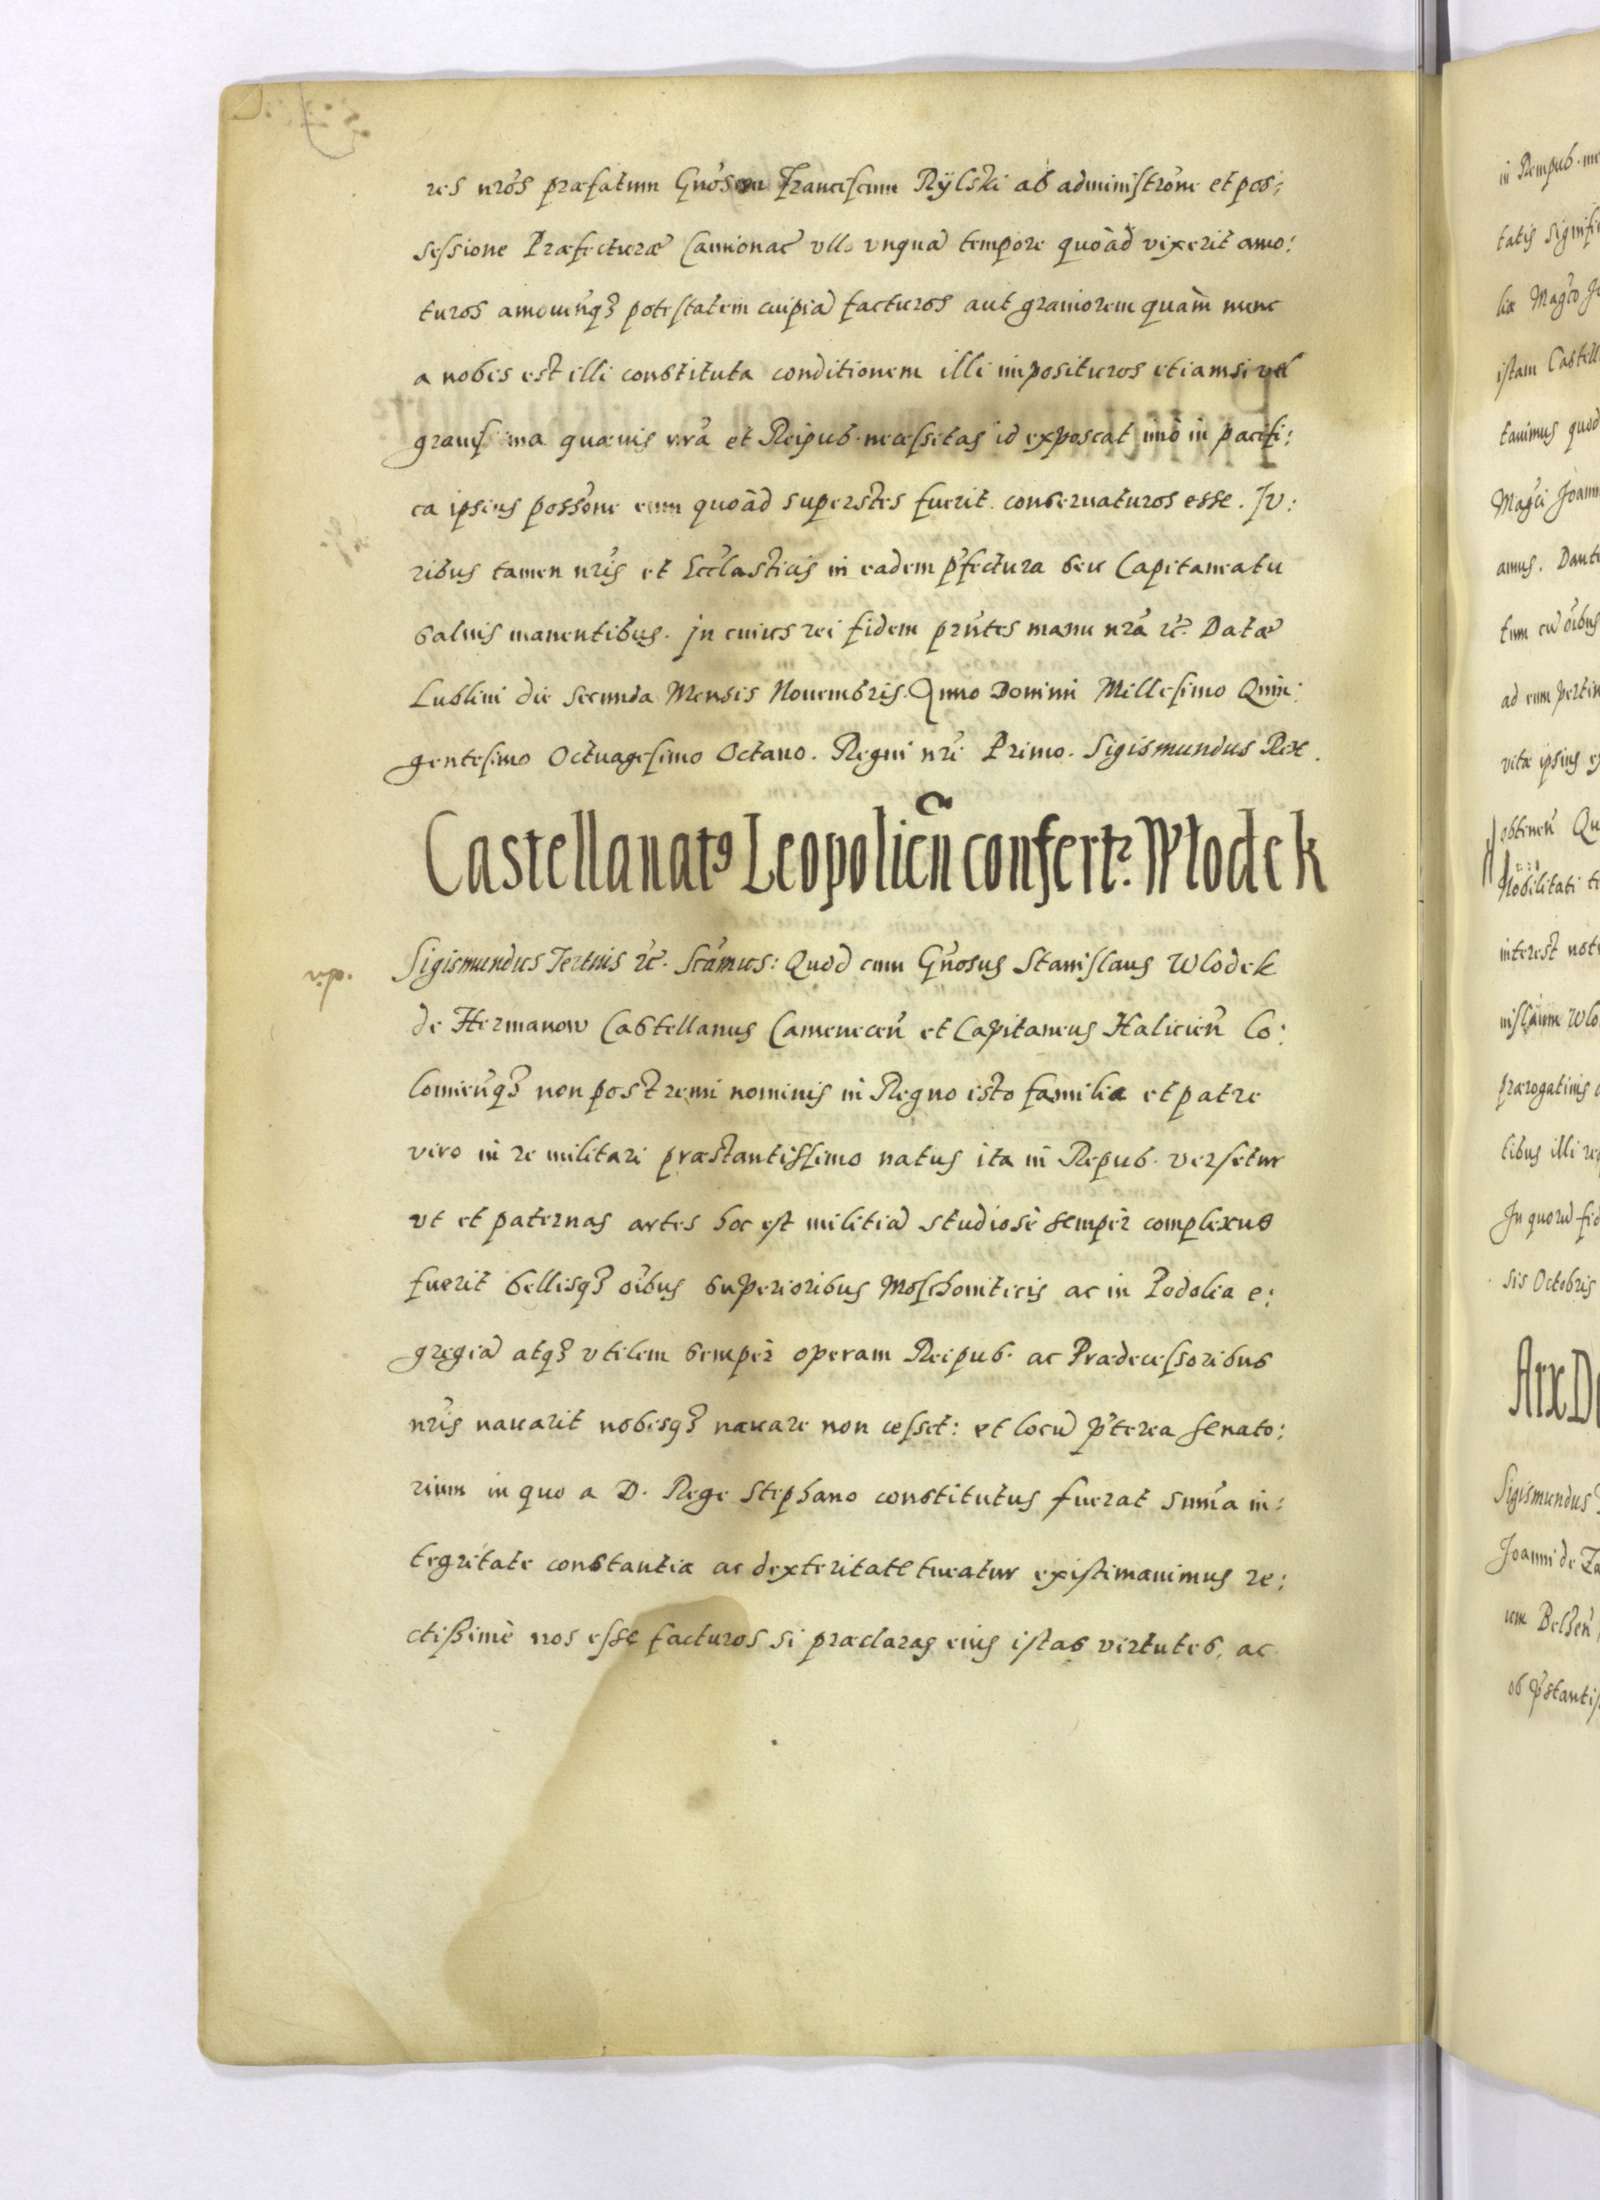 res nr̃os præfatum Gñosum Franciscum Rÿlski ab administrõne et pos:
sessione Præfecturæ Camionac̃ ullo unquã tempore quoàd vixerit amo:
turos amovendiq̃ potestatem cuipiã facturos aut graviorem quàm nunc
a nobis est illi constituta conditionem illi imposituros etiamsi vel
gravissima quævis nr̃a et Reipub. necessitas id exposcat imò in pacifi:
ca ipsius possõne eum quoàd superstes fuerit conservaturos esse. Ju:
ribus tamen nr̃is et Ecclãsticis in eadem p̃fectura seu Capitaneatu
salvis manentibus. In cuius rei fidem prñtes manu nr̃a rc̃. Datæ
Lublini die secunda Mensis Novembris. Anno Domini Millesimo Quin:
gentesimo Octuagesimo Octavo. Regni nr̃i Primo. Sigismundus Rex.
Castellanatꝯ Leopolien̄ confertr. Włodek
Sigismundus Tertius rc̃. Scãmus: Quod cum Gñosus Stanislaus Wlodek
de Hermanow Castellanus Camenecen̄ et Capitaneus Halicien̄ Co:
lomien̄q̃ non postremi nominis in Regno isto familia et patre
viro in re militari præstantissimo natus ita in Repub. versetur
vt et paternas artes hoc est militiã studiosè semper complexus
fuerit bellisq̃ oĩbus superioribus Moschoviticis ac in Podolia e:
gregiã atq̃ vtilem semper operam Reipub. ac Prædecessoribus
nr̃is navarit nobisq̃ navare non cesset: et locũ p̃terea senato:
rium in quo a D. Rege Stephano constitutus fuerat sum̃a in:
tegritate constantia ac dexteritate tueatur existimavimus re:
ctissimè nos esse facturos si præclaras eius istas virtutes, ac
in Rempub.
tatis signifi
liæ Magc̃o
istam Castell
tavimus quod
Magc̃i Joann
amus. Dant
tum cũ oĩbus
ad eum pertin
vitæ ipsius
obtinen̄ Qu
Nobilitati
interest
nislaum Wlo
prærogativis
tibus illi
In quorũ fid
sis Octobris
Arx D
Sigismundus
Joanni de Za
um Belzen̄
ob p̃stantis